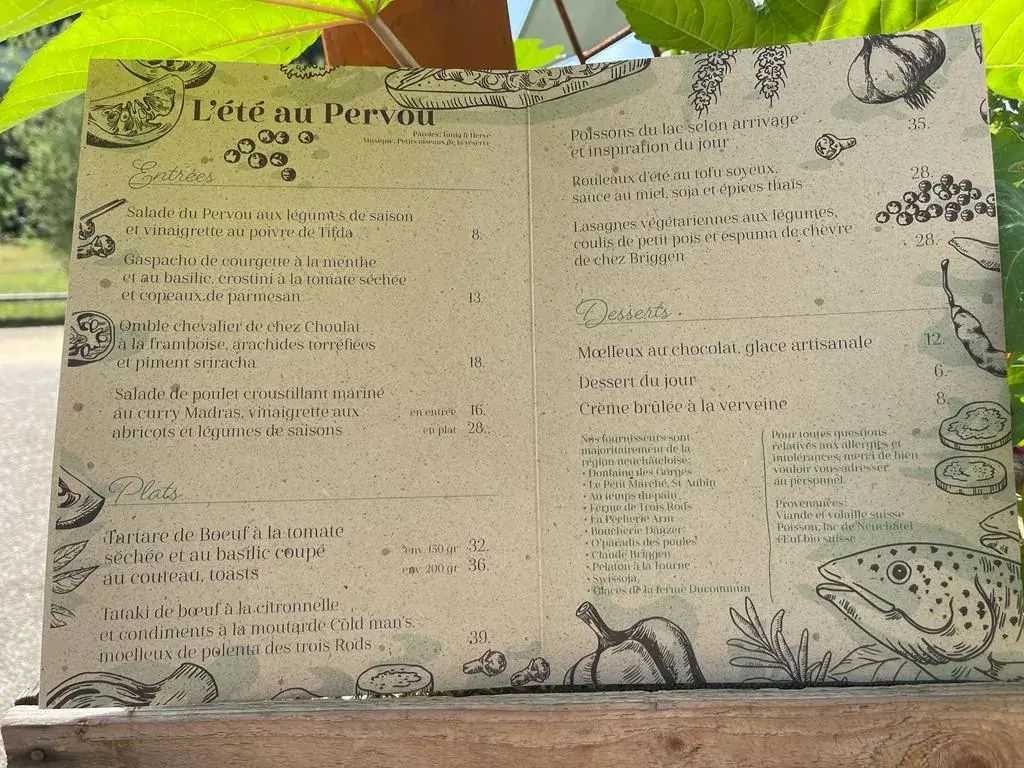 L'été au Pervou
Paroles: Tania & Hervé
Musique: Petits oiseaux de la réserve
Entrées
Salade du Pervou aux légumes de saison
et vinaigrette au poivre de Tifda 8.
Gaspacho de courgette à la menthe
et au basilic, crostini à la tomate séchée
et copeaux de parmesan 13.
Omble chevalier de chez Choulat
à la framboise, arachides torréfiées
et piment sriracha 18.
Salade de poulet croustillant mariné
au curry Madras, vinaigrette aux en entrée 16.
abricots et légumes de saisons en plat 28.
Plats
Tartare de Boeuf à la tomate
séchée et au basilic coupé env. 150 gr 32.
au couteau, toasts env. 200 gr 36.
Tataki de bœuf à la citronnelle
et condiments à la moutarde Cold man's,
moelleux de polenta des trois Rods 39.
Poissons du lac selon arrivage 35.
et inspiration du jour
Rouleaux d'été au tofu soyeux, 28.
sauce au miel, soja et épices thaïs
Lasagnes végétariennes aux légumes,
coulis de petit pois et espuma de chèvre 28.
de chez Briggen
Desserts
Mœlleux au chocolat, glace artisanale 12.
Dessert du jour 6.
Crème brûlée à la verveine 8.
Nos fournisseurs sont
majoritairement de la
région neuchâteloise:
• Domaine des Gorges
• Le Petit Marché, St-Aubin
• Au temps du pain
• Ferme de Trois Rods
• La Pêcherie Arm
• Boucherie Danzer
• O'paradis des poules
• Claude Briggen
• Pelaton à la Journe
• Swissoja
• Glaces de la ferme Ducommun
Pour toutes questions
relatives aux allergies et
intolérances, merci de bien
vouloir vous adresser
au personnel.
Provenances:
Viande et volaille suisse
Poisson, lac de Neuchâtel
Œuf bio suisse